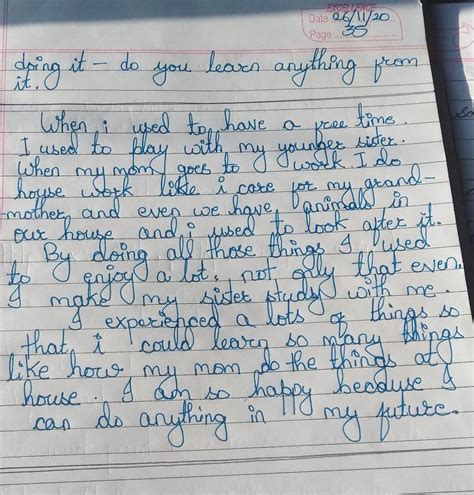 EXCELLENCE
Date 26/11/20
Page 30
doing it - do you learn anything from
it.
When i used to have a free time.
I used to play with my younger sister.
When my mom goes to work I do
house work like i care for my grand-
-mother, and even we have animals in
our house and i used to look after it.
By doing all those things I used
to enjoy a lot. not only that even
I make my sister study with me.
I experienced a lots of things so
that i could learn so many things
like how my mom do the things at
house. I am so happy because I
can do anything in my future.